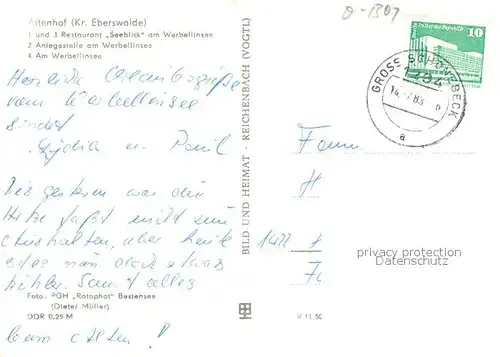 Altenhof (Kr. Eberswalde)
1 und 3 Restaurant „Seeblick" am Werbellinsee
2 Anlegestelle am Werbellinsee
4 Am Werbellinsee
Herzliche Urlaubsgrüße
vom Werbellinsee
sendet
Lydia u. Paul
Bis gestern war die
Hitze fast nicht zum
Aushalten, aber heute
ist es nun doch etwas
kühler. Sonst alles
Foto: PGH „Rotophot" Bestensee
(Dieter Möller)
DDR 0,25 M
beim alten!
BILD UND HEIMAT · REICHENBACH (VOGTL)
V 11 50
10
GROSS SCHÖNEBECK
a
Fam
H
privacy protection
Datenschutz